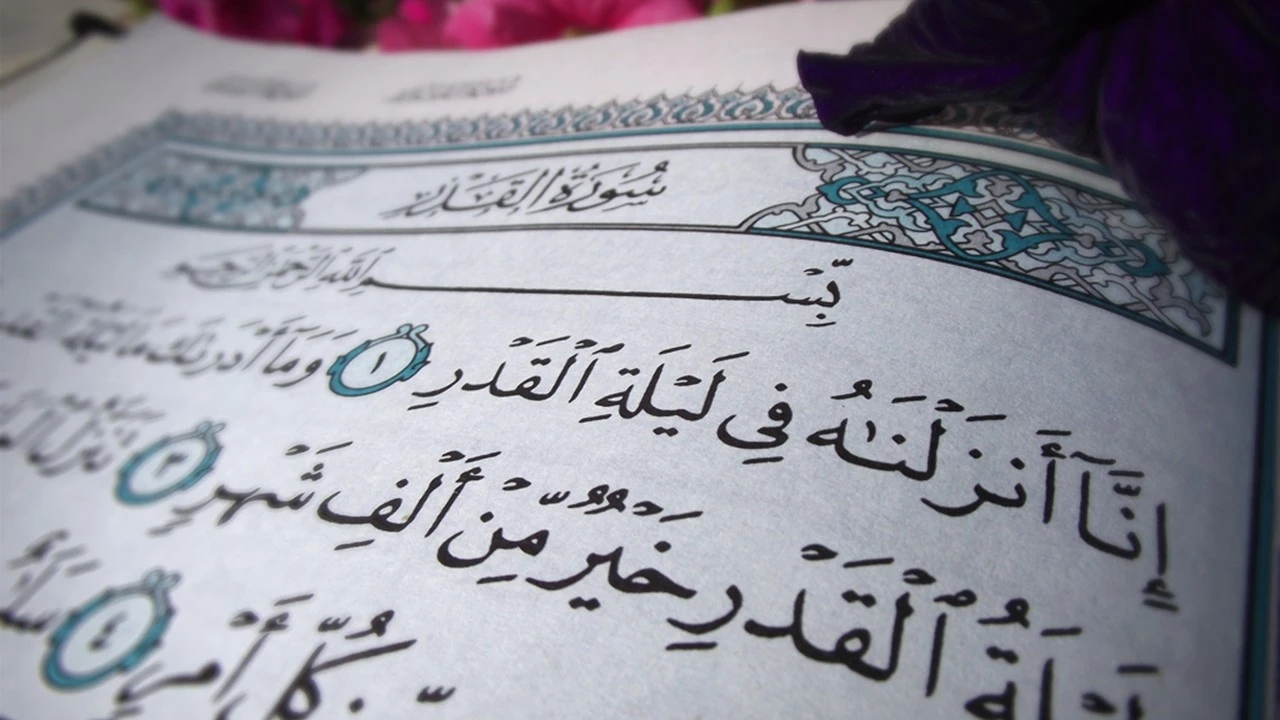 سُورَةُ القَدْرِ
بِّسْمِ ٱللَّهِ ٱلرَّحْمَٰنِ ٱلرَّحِيمِ
إِنَّآ أَنزَلْنَٰهُ فِى لَيْلَةِ ٱلْقَدْرِ ١ وَمَآ أَدْرَىٰكَ مَا لَيْلَةُ
لَيْلَةُ ٱلْقَدْرِ خَيْرٌ مِّنْ أَلْفِ شَهْرٍ ٣ تَنَزَّلُ
كُلِّ أَمْرٍ ٤